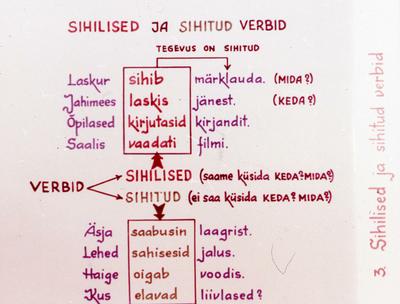 SIHILISED JA SIHITUD VERBID
TEGEVUS ON SIHITUD
Laskur sihib märklauda. (MIDA?)
Jahimees laskis jänest. (KEDA?)
Õpilased kirjutasid kirjandit.
Saalis vaadati filmi.
VERBID
SIHILISED (saame küsida KEDA?MIDA?)
SIHITUD (ei saa küsida KEDA?MIDA?)
Äsja saabusin laagrist.
Lehed sahisesid jalus.
Haige oigab voodis.
Kus elavad liivlased?
3. Sihilised ja sihitud verbid